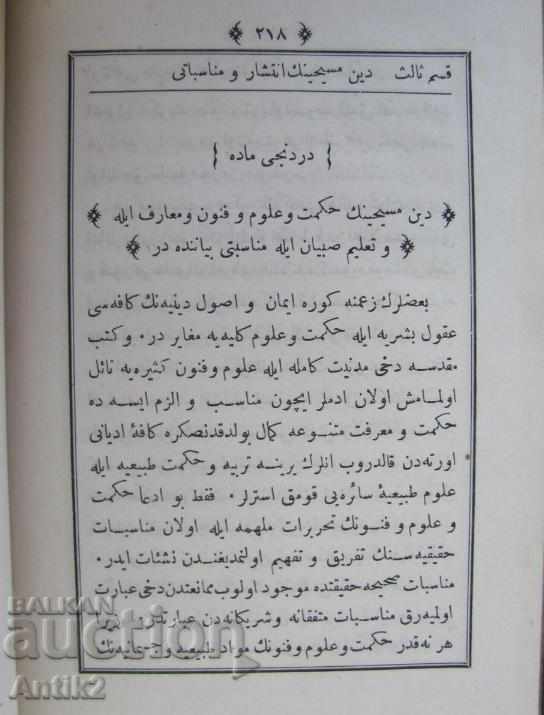 ﴾ ٢١٨ ﴿
قسم ثالث دين مسيحينك انتشار و مناسباتى
{ دردنجى ماده }
﴾ دين مسيحينك حكمت و علوم و فنون و معارف ايله ﴿
﴾ و تعليم صبيان ايله مناسبتى بياننده در ﴿
بعضلرك زعمنه كوره ايمان و اصول دينيه نك كافه سى
عقول بشريه ايله حكمت و علوم كليه يه مغاير در ٠ و كتب
مقدسه دخى مدنيت كامله ايله علوم و فنون كثيره يه نائل
اولمامش اولان ادملر ايچون مناسب و الزم ايسه ده
حكمت و معرفت متنوعه كمال بولدقدنصكره كافهٔ اديانى
اورته دن قالدروب انلرك يرينه تربيه و حكمت طبيعيه ايله
علوم طبيعيهٔ سائره يى قومق استرلر ٠ فقط بو ادعا حكمت
و علوم و فنونك تحريرات ملهمه ايله اولان مناسبات
حقيقيه سنك تفريق و تفهيم اولنمديغندن نشئات ايدر ٠
مناسبات صحيحه حقيقتده موجود اولوب ممانعتدن دخى عبارت
اولميه رق مناسبات متفقانه و شريكانه دن عبارتدر ٠
هر نه قدر حكمت و علوم و فنونك مواد طبيعيه و
BALKAN
auction
Antik2